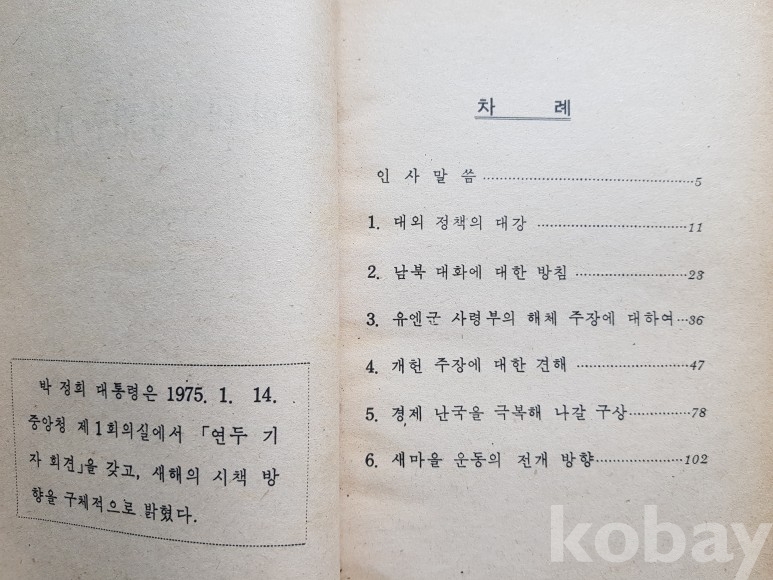 박 정희 대통령은 1975. 1. 14.
중앙청 제1회의실에서 「연두 기
자 회견」을 갖고, 새해의 시책 방
향을 구체적으로 밝혔다.
차 례
인 사 말 씀 5
1. 대외 정책의 대강 11
2. 남북 대화에 대한 방침 23
3. 유엔군 사령부의 해체 주장에 대하여 36
4. 개헌 주장에 대한 견해 47
5. 경제 난국을 극복해 나갈 구상 78
6. 새마을 운동의 전개 방향 102
kobay